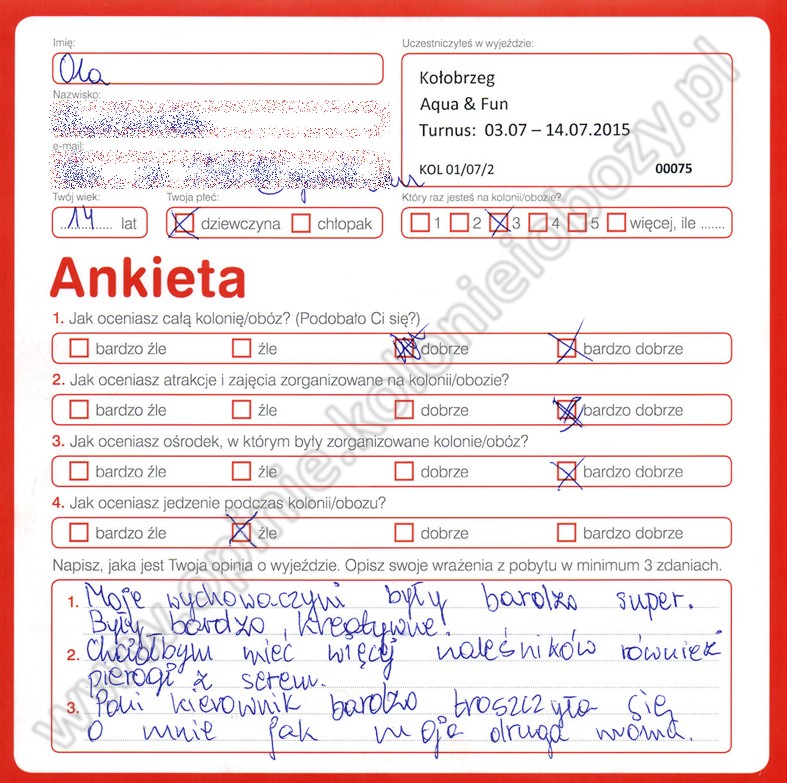 Imię:
Ola
Uczestniczyłeś w wyjeździe:
Kołobrzeg
Aqua & Fun
Turnus: 03.07 – 14.07.2015
KOL 01/07/2 00075
Nazwisko:
e-mail:
Twój wiek:
14 lat
Twoja płeć:
dziewczyna chłopak
Który raz jesteś na kolonii/obozie?
1 2 3 4 5 więcej, ile .......
Ankieta
1. Jak oceniasz całą kolonię/obóz? (Podobało Ci się?)
bardzo źle źle dobrze bardzo dobrze
2. Jak oceniasz atrakcje i zajęcia zorganizowane na kolonii/obozie?
bardzo źle źle dobrze bardzo dobrze
3. Jak oceniasz ośrodek, w którym były zorganizowane kolonie/obóz?
bardzo źle źle dobrze bardzo dobrze
4. Jak oceniasz jedzenie podczas kolonii/obozu?
bardzo źle źle dobrze bardzo dobrze
Napisz, jaka jest Twoja opinia o wyjeździe. Opisz swoje wrażenia z pobytu w minimum 3 zdaniach.
1. Moje wychowaczyni były bardzo super.
Były bardzo kreatywne.
2. Chciałbym mieć więcej naleśników również
pierogi z serem.
3. Pani kierownik bardzo troszczyła się
o mnie jak moja druga mama.
www.opinie.kolonieiobozy.pl